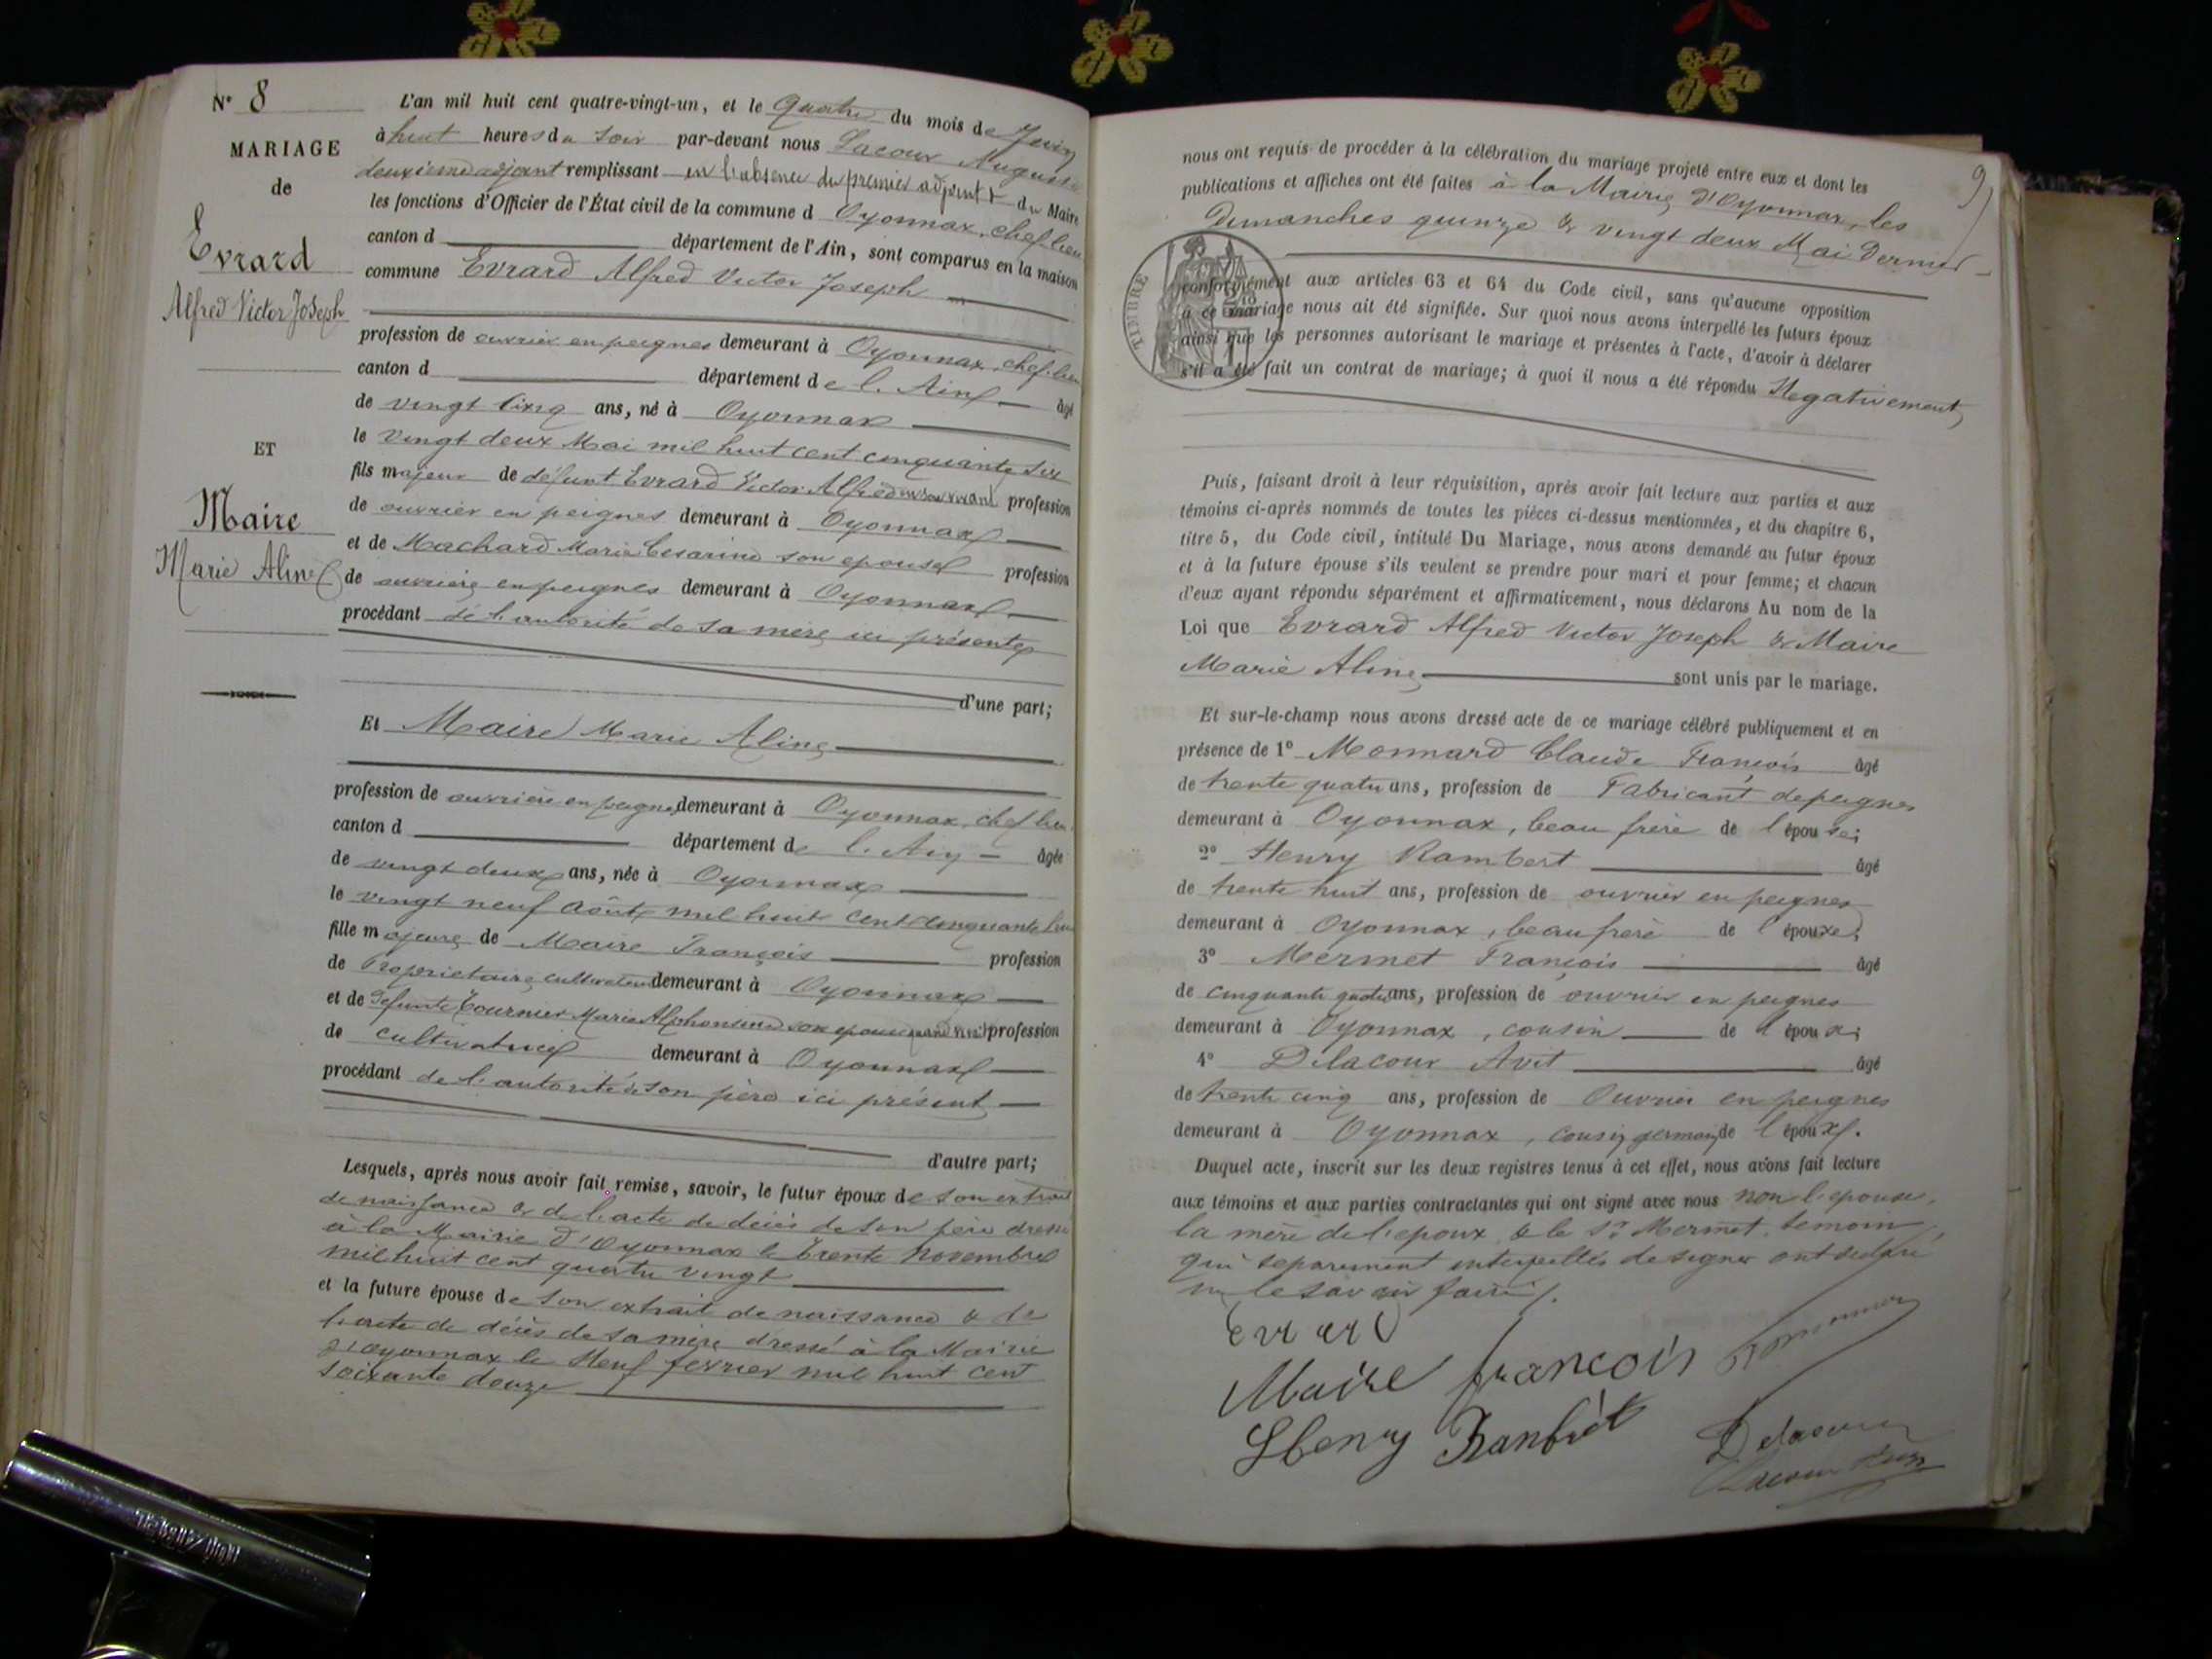 N° 8
MARIAGE
de
Evrard
Alfred Victor Joseph
ET
Maire
Marie Aline
L'an mil huit cent quatre-vingt-un, et le Quatre du mois de Juin
à huit heures du soir par-devant nous Lacour Auguste
deuxième adjoint remplissant en l'absence du premier adjoint & du Maire
les fonctions d'Officier de l'État civil de la commune d Oyonnax, chef lieu
canton d département de l'Ain, sont comparus en la maison
commune Evrard Alfred Victor Joseph
profession de ouvrier en peignes demeurant à Oyonnax, chef-lieu
canton d département de l'Ain âgé
de vingt cinq ans, né à Oyonnax
le vingt deux Mai mil huit cent cinquante six
fils majeur de défunt Evrard Victor Alfred en son vivant profession
de ouvrier en peignes demeurant à Oyonnax
et de Machard Marie Césarine son épouse profession
de ouvrière en peignes demeurant à Oyonnax
procédant de l'autorité de sa mère ici présente
d'une part;
Et Maire Marie Aline
profession de ouvrière en peignes demeurant à Oyonnax, chef lieu
canton d département de l'Ain âgée
de vingt deux ans, née à Oyonnax
le vingt neuf Août mil huit cent cinquante huit
fille majeure de Maire François profession
de Propriétaire cultivateur demeurant à Oyonnax
et de défunte Tournier Marie Alphonsine son épouse quand vivait profession
de cultivatrice demeurant à Oyonnax
procédant de l'autorité de son père ici présent
d'autre part;
Lesquels, après nous avoir fait remise, savoir, le futur époux de son extrait
de naissance & de l'acte de décès de son père dressé
à la Mairie d'Oyonnax le trente Novembre
mil huit cent quatre vingt
et la future épouse de son extrait de naissance & de
l'acte de décès de sa mère dressé à la Mairie
d'Oyonnax le Neuf février mil huit cent
soixante douze
9
nous ont requis de procéder à la célébration du mariage projeté entre eux et dont les
publications et affiches ont été faites à la Mairie d'Oyonnax, les
Dimanches quinze & vingt deux Mai dernier
TIMBRE
conformément aux articles 63 et 64 du Code civil, sans qu'aucune opposition
à ce mariage nous ait été signifiée. Sur quoi nous avons interpellé les futurs époux
ainsi que les personnes autorisant le mariage et présentes à l'acte, d'avoir à déclarer
s'il a été fait un contrat de mariage; à quoi il nous a été répondu Négativement
Puis, faisant droit à leur réquisition, après avoir fait lecture aux parties et aux
témoins ci-après nommés de toutes les pièces ci-dessus mentionnées, et du chapitre 6,
titre 5, du Code civil, intitulé Du Mariage, nous avons demandé au futur époux
et à la future épouse s'ils veulent se prendre pour mari et pour femme; et chacun
d'eux ayant répondu séparément et affirmativement, nous déclarons Au nom de la
Loi que Evrard Alfred Victor Joseph & Maire
Marie Aline sont unis par le mariage.
Et sur-le-champ nous avons dressé acte de ce mariage célébré publiquement et en
présence de 1° Monnard Claude François âgé
de trente quatre ans, profession de Fabricant de peignes
demeurant à Oyonnax, beau frère de l'épouse;
2° Henry Rambert âgé
de trente huit ans, profession de ouvrier en peignes
demeurant à Oyonnax, beau frère de l'épouxe;
3° Mermet François âgé
de cinquante quatre ans, profession de ouvrier en peignes
demeurant à Oyonnax, cousin de l'époux;
4° Delacour Avit âgé
de trente cinq ans, profession de Ouvrier en peignes
demeurant à Oyonnax, cousin germain de l'époux.
Duquel acte, inscrit sur les deux registres tenus à cet effet, nous avons fait lecture
aux témoins et aux parties contractantes qui ont signé avec nous non l'épouse,
la mère de l'époux & le Sr Mermet témoin,
qui séparément interpellés de signer ont déclaré
ne le savoir faire.
Evrard
Maire françois
Henry Ranbèt
Delacour